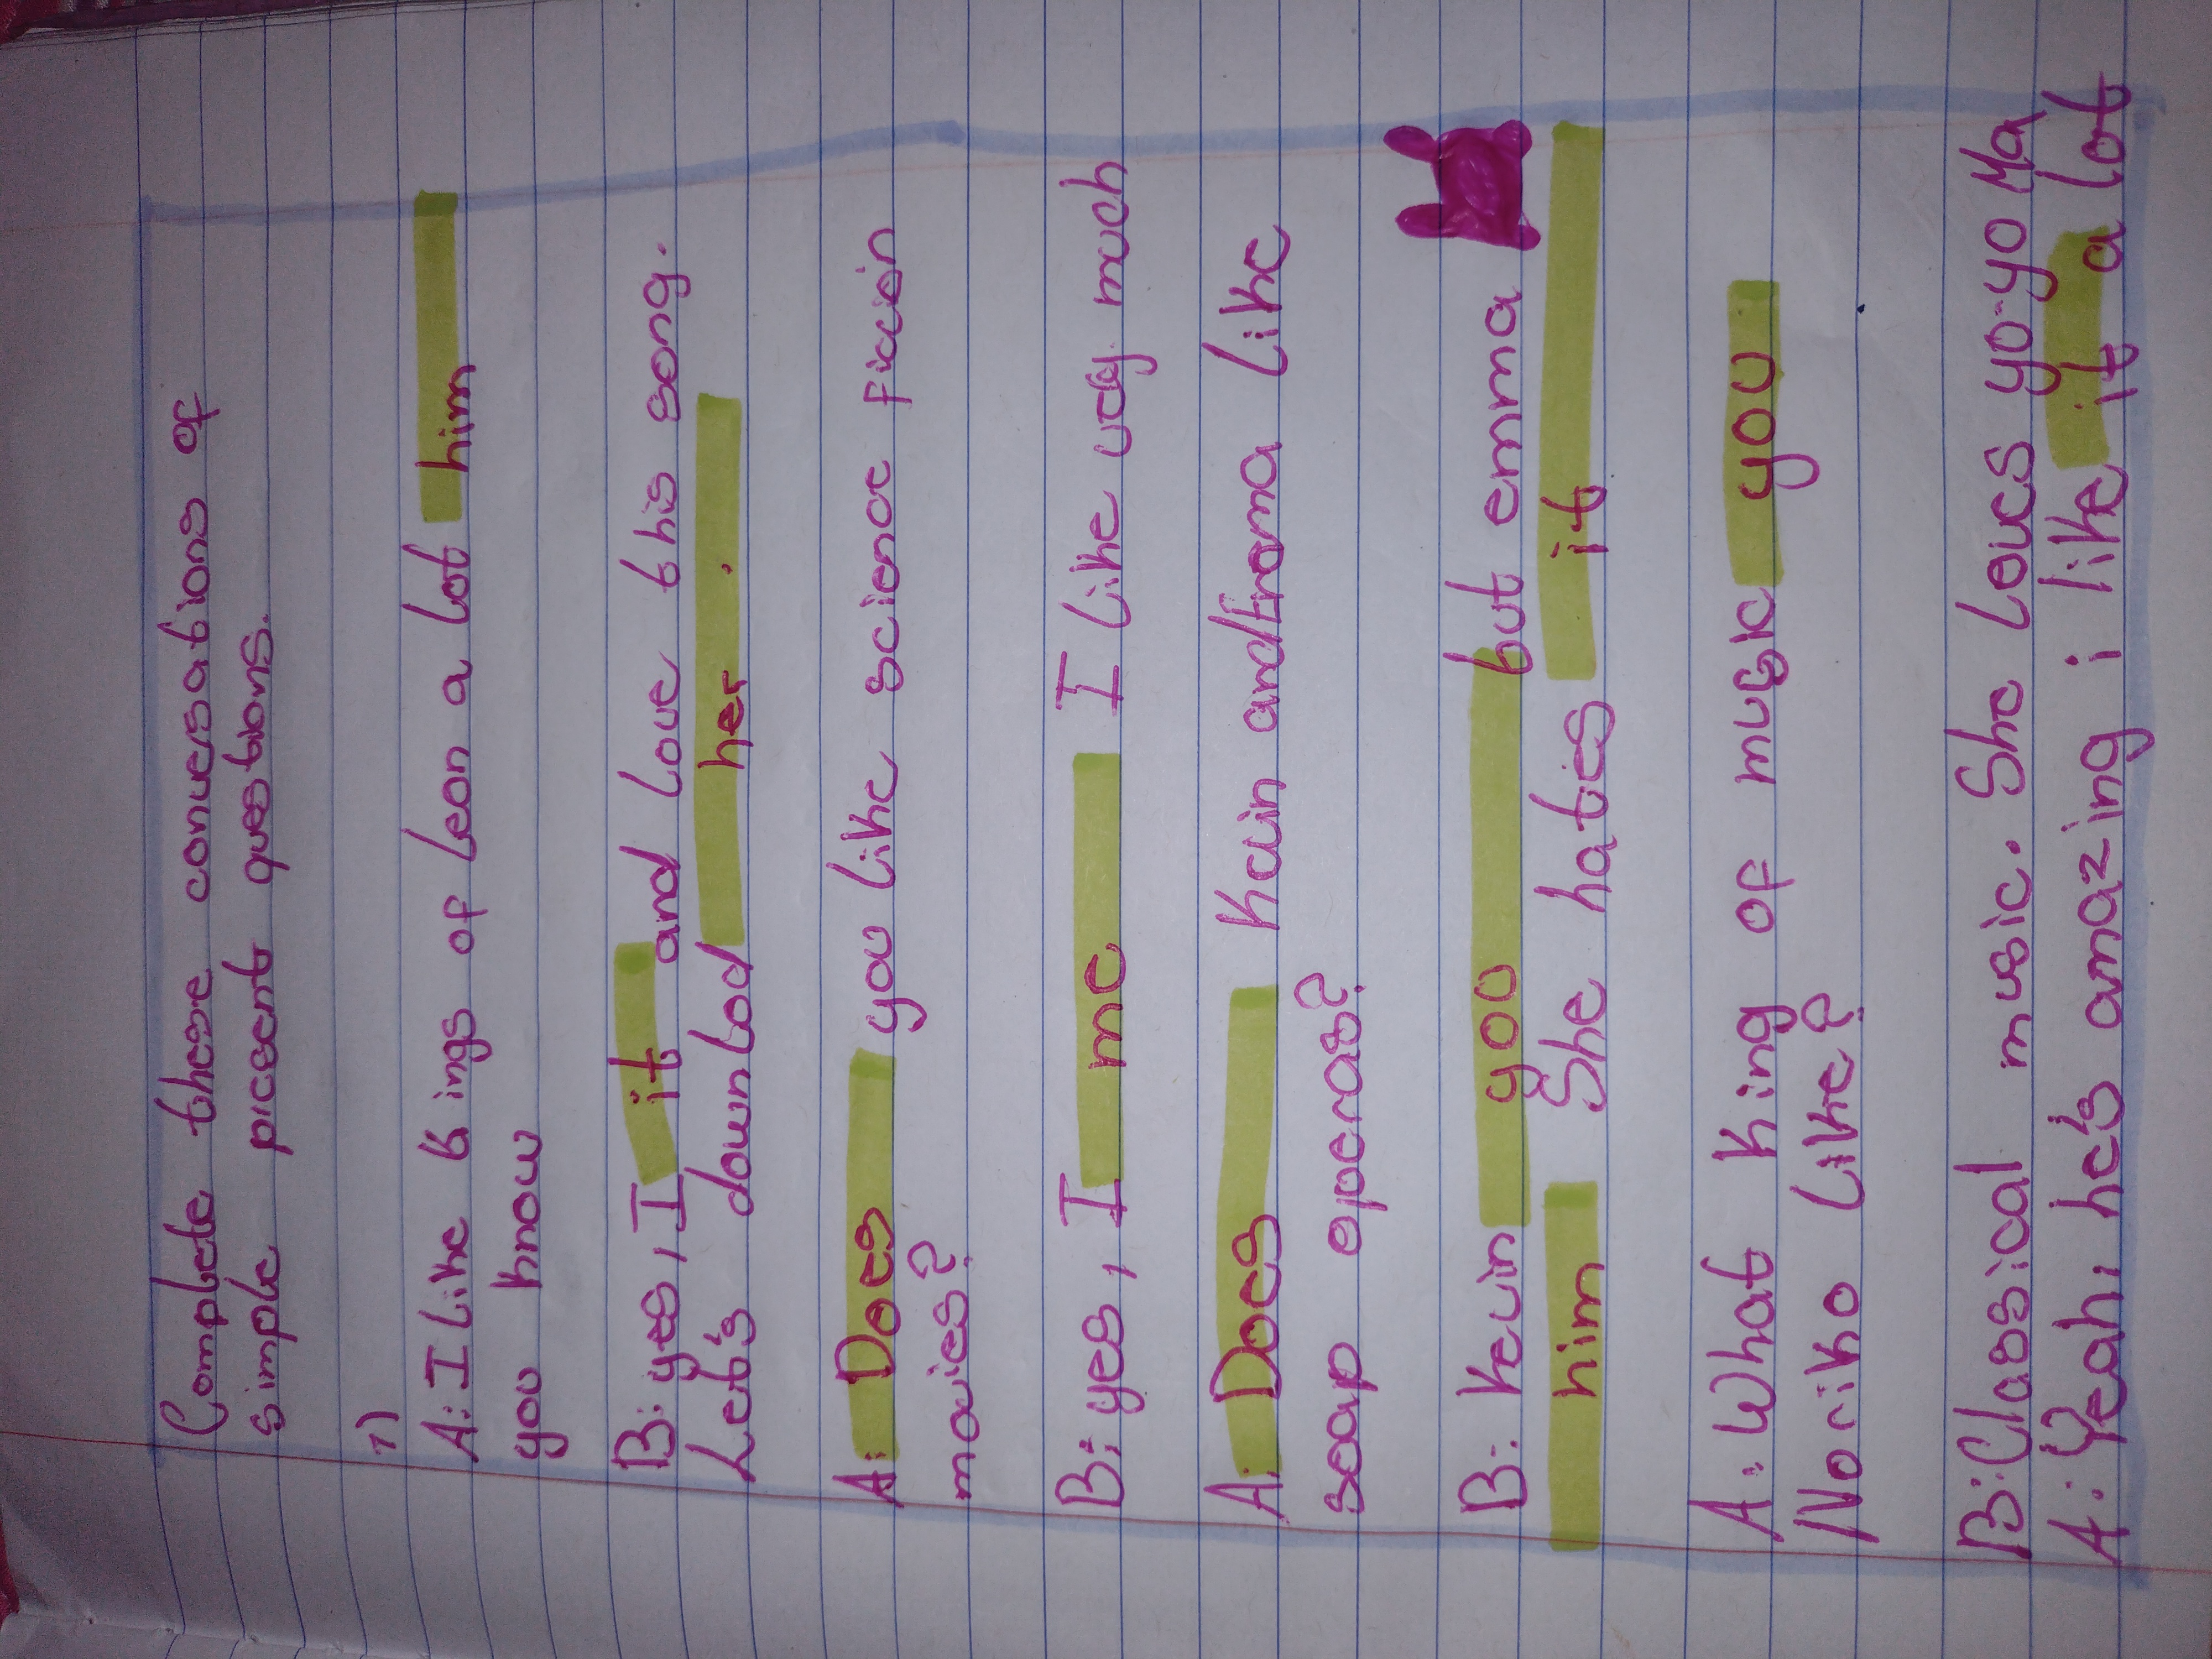 Complete these conversations of
simple present questions.
1)
A: I like Kings of Leon a lot him
you know
B: yes, I it and love this song.
Let's downlod her.
A: Does you like science ficcion
movies?
B: yes, I me I like very much
A: Does Kevin and Emma like
soap operas?
B: Kevin you but emma
him She hates it
A: What King of music you
Noriko like?
B: Classical music. She loves yo-yo Ma
A: Yeah, he's amazing i like it a lot